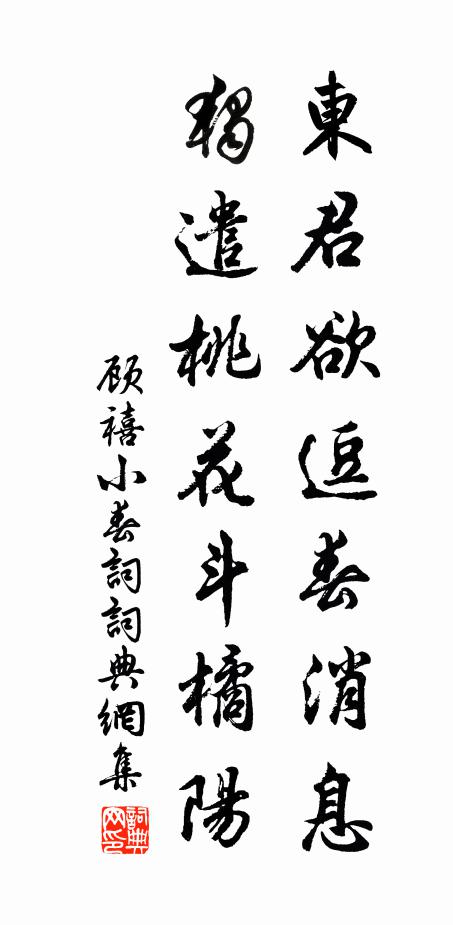 東君欲逗春消息
獨遣桃花斗橘陽
顾禧小春詞詞典網集
詞典網印